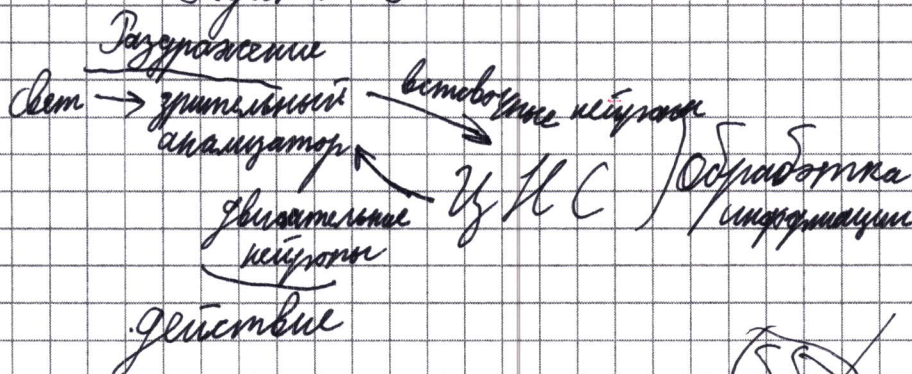 Раздражение
Свет → зрительный вставочные нейроны
анализатор
ЦНС ) Обработка
информации
двигательные
нейроны
действие